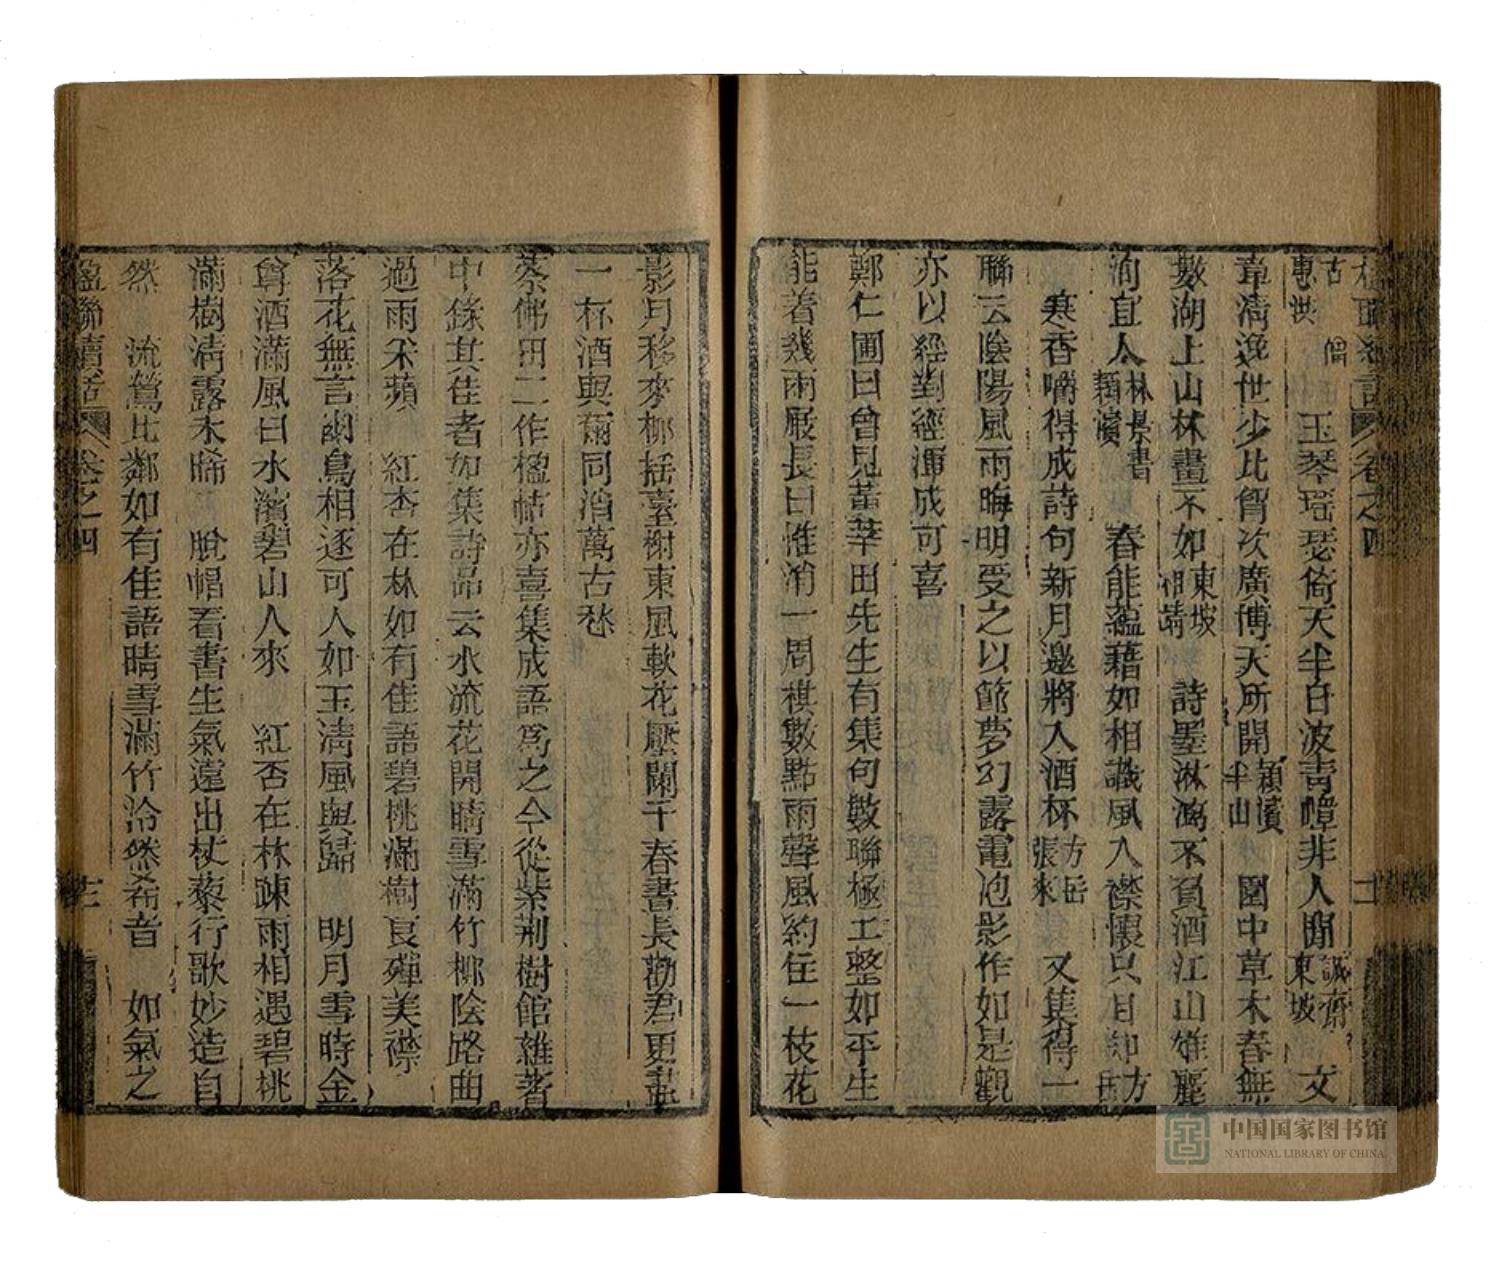 卷之四
十一
古僧惠洪 玉琴瑶瑟倚天半白波青嶂非人間 誠齋 東坡 文
章淸逸世少比胷次廣博天所開 潁濱 半山 園中草木春無
數湖上山林畫不如 東坡 和靖 詩墨淋漓不負酒江山雄麗
洵宜人 林景書 潁濱 春能蘊藉如相識風入襟懷只自 方
寒香嚼得成詩句新月邀將入酒杯 方岳 張來 又集得一
聯云陰陽風雨晦明受之以節夢幻露電泡影作如是觀
亦以經對經渾成可喜
鄭仁圃曰曾見黃莘田先生有集句數聯極工整如平生
能着幾兩屐長日惟消一局棋數點雨聲風約住一枝花
影月移來柳揺臺榭東風軟花壓闌干春晝長勸君更盡
一杯酒與爾同消萬古愁
蔡佛田二作楹帖亦喜集成語爲之今從紫荆樹館雜著
中錄其佳者如集詩品云水流花開晴雪滿竹柳陰路曲
過雨采蘋 紅杏在林如有佳語碧桃滿樹良殫美襟
落花無言幽鳥相逐可人如玉淸風與歸 明月雪時金
尊酒滿風日水濱碧山人來 紅杏在林疎雨相遇碧桃
滿樹淸露未晞 脫帽看書生氣遠出杖藜行歌妙造自
然 流鶯比鄰如有佳語晴雪滿竹泠然希音 如氣之
楹聯續話 卷之四 十二
中国国家图书馆
NATIONAL LIBRARY OF CHINA